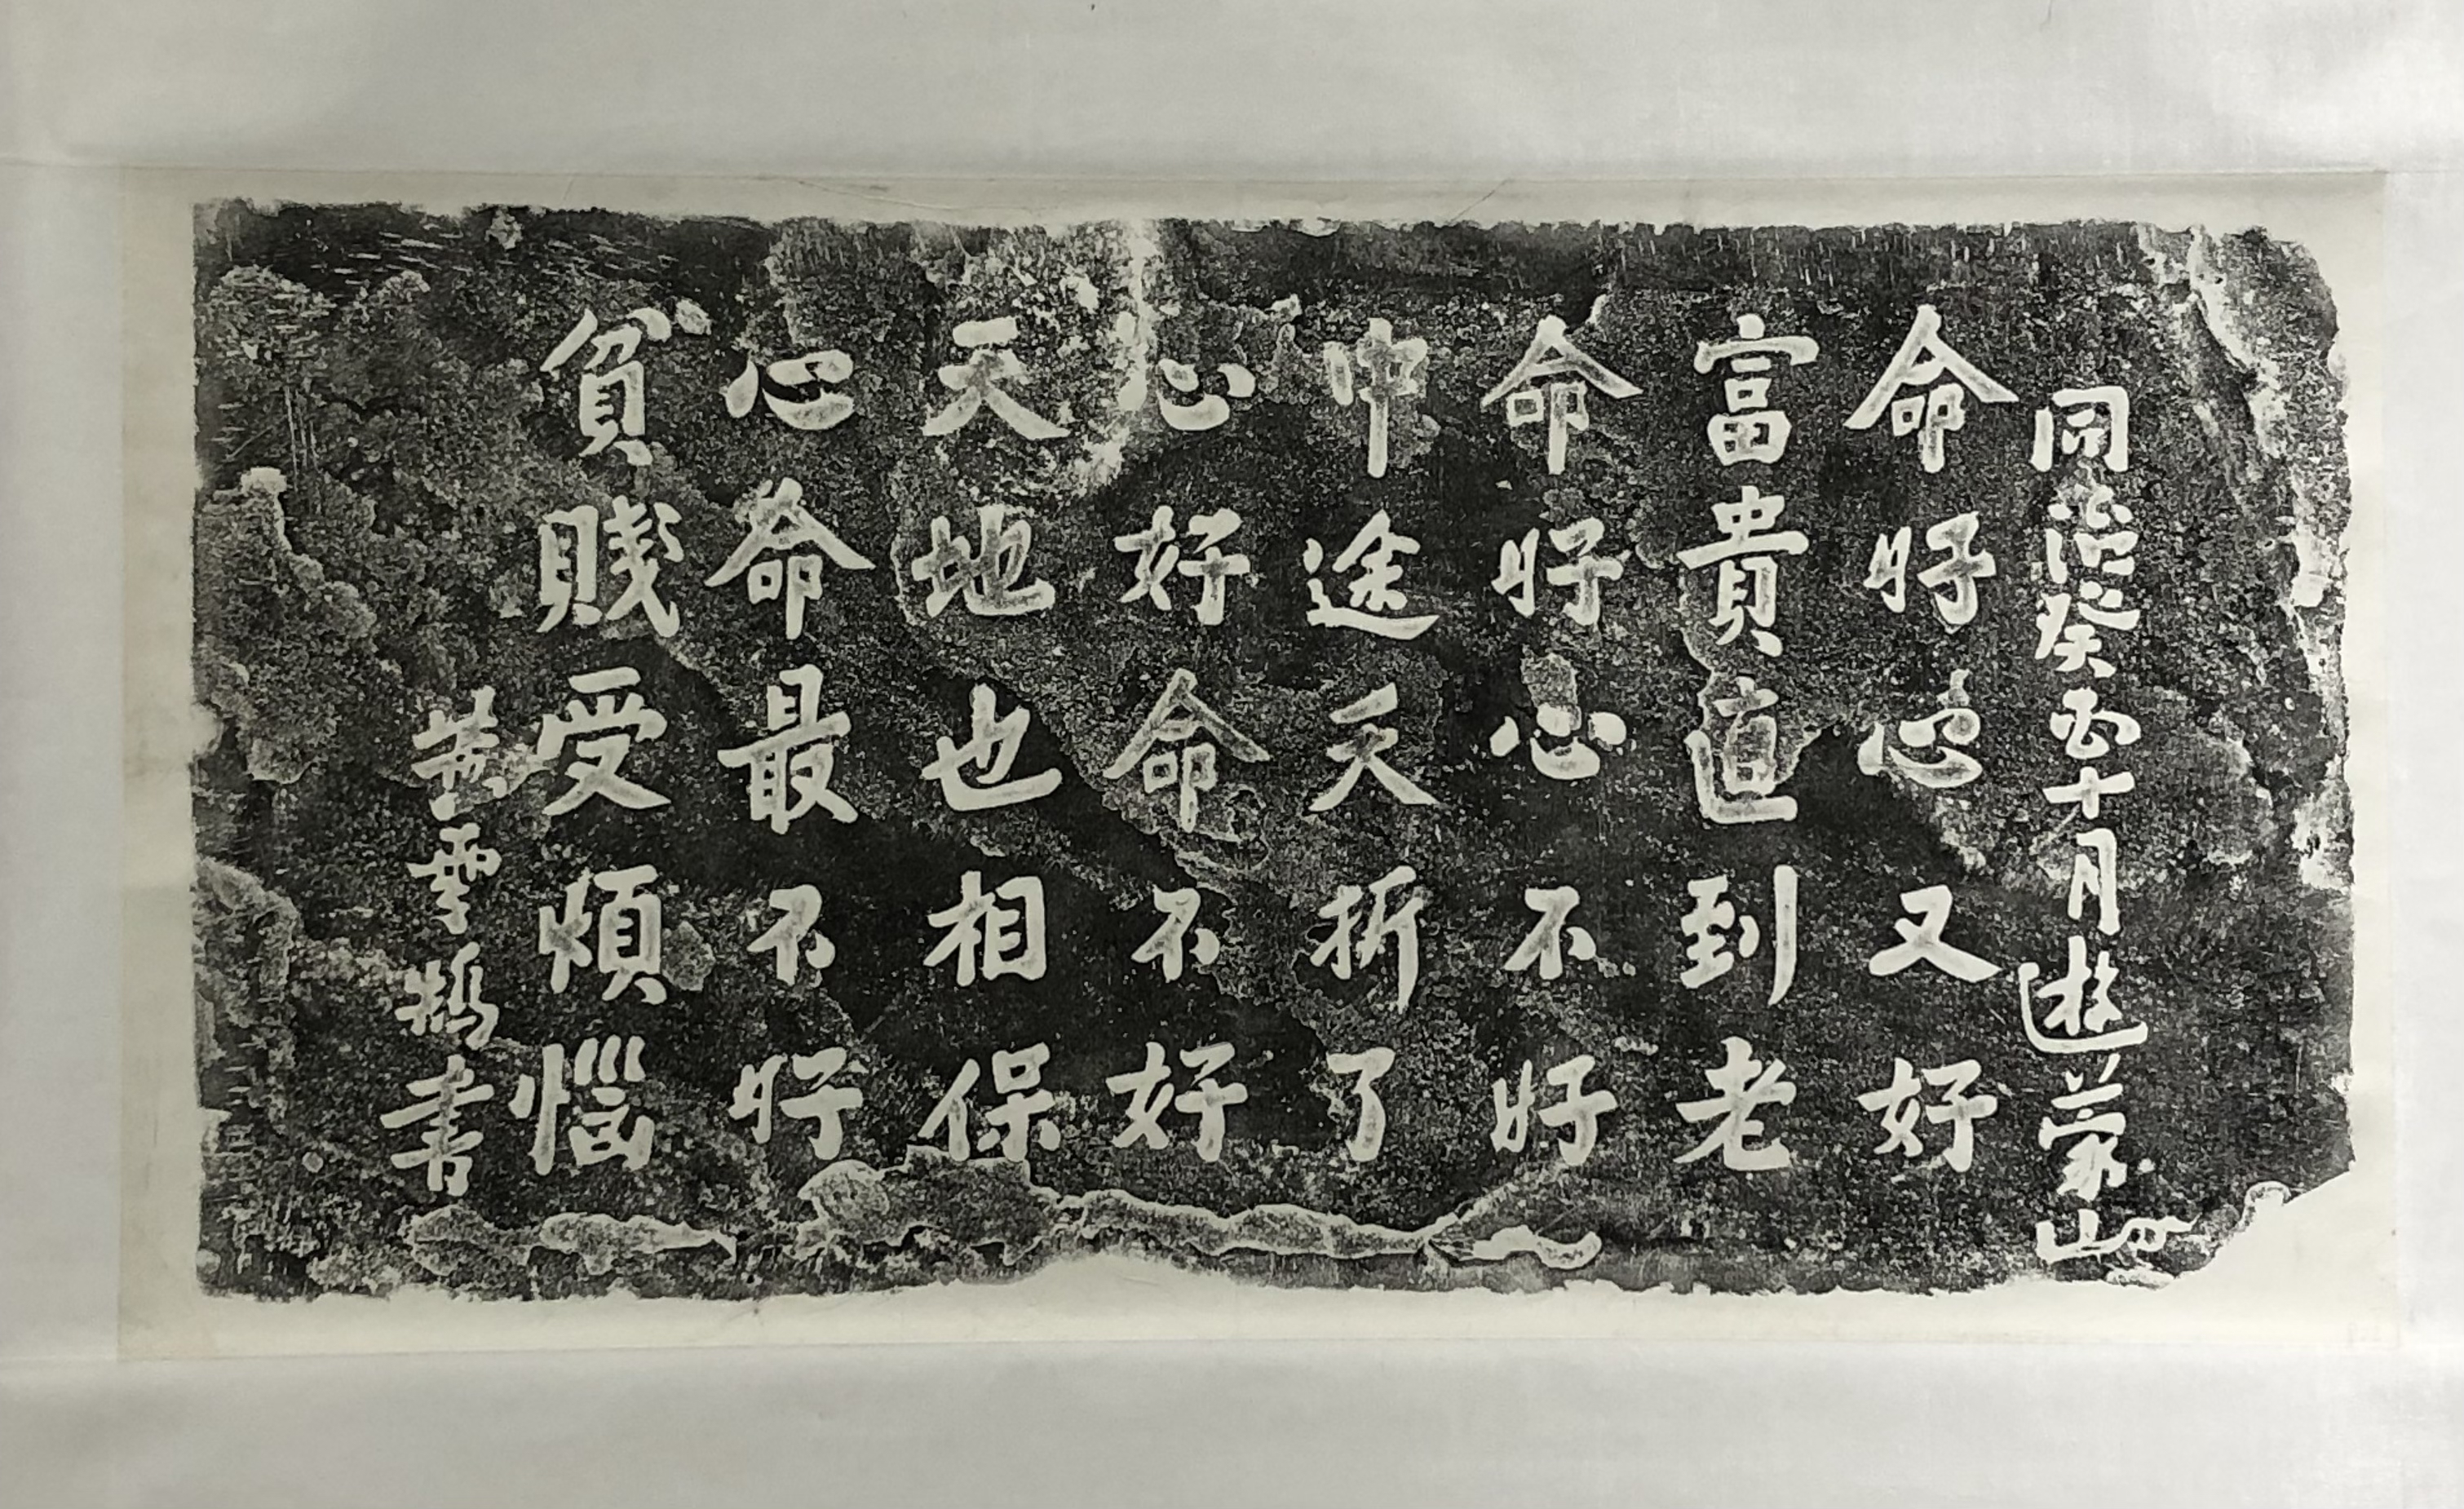 同治癸酉十月遊蒙山
命好心又好
富貴直到老
命好心不好
中途夭折了
心好命不好
天地也相保
心命最不好
貧賤受煩惱
黃雲鵠書